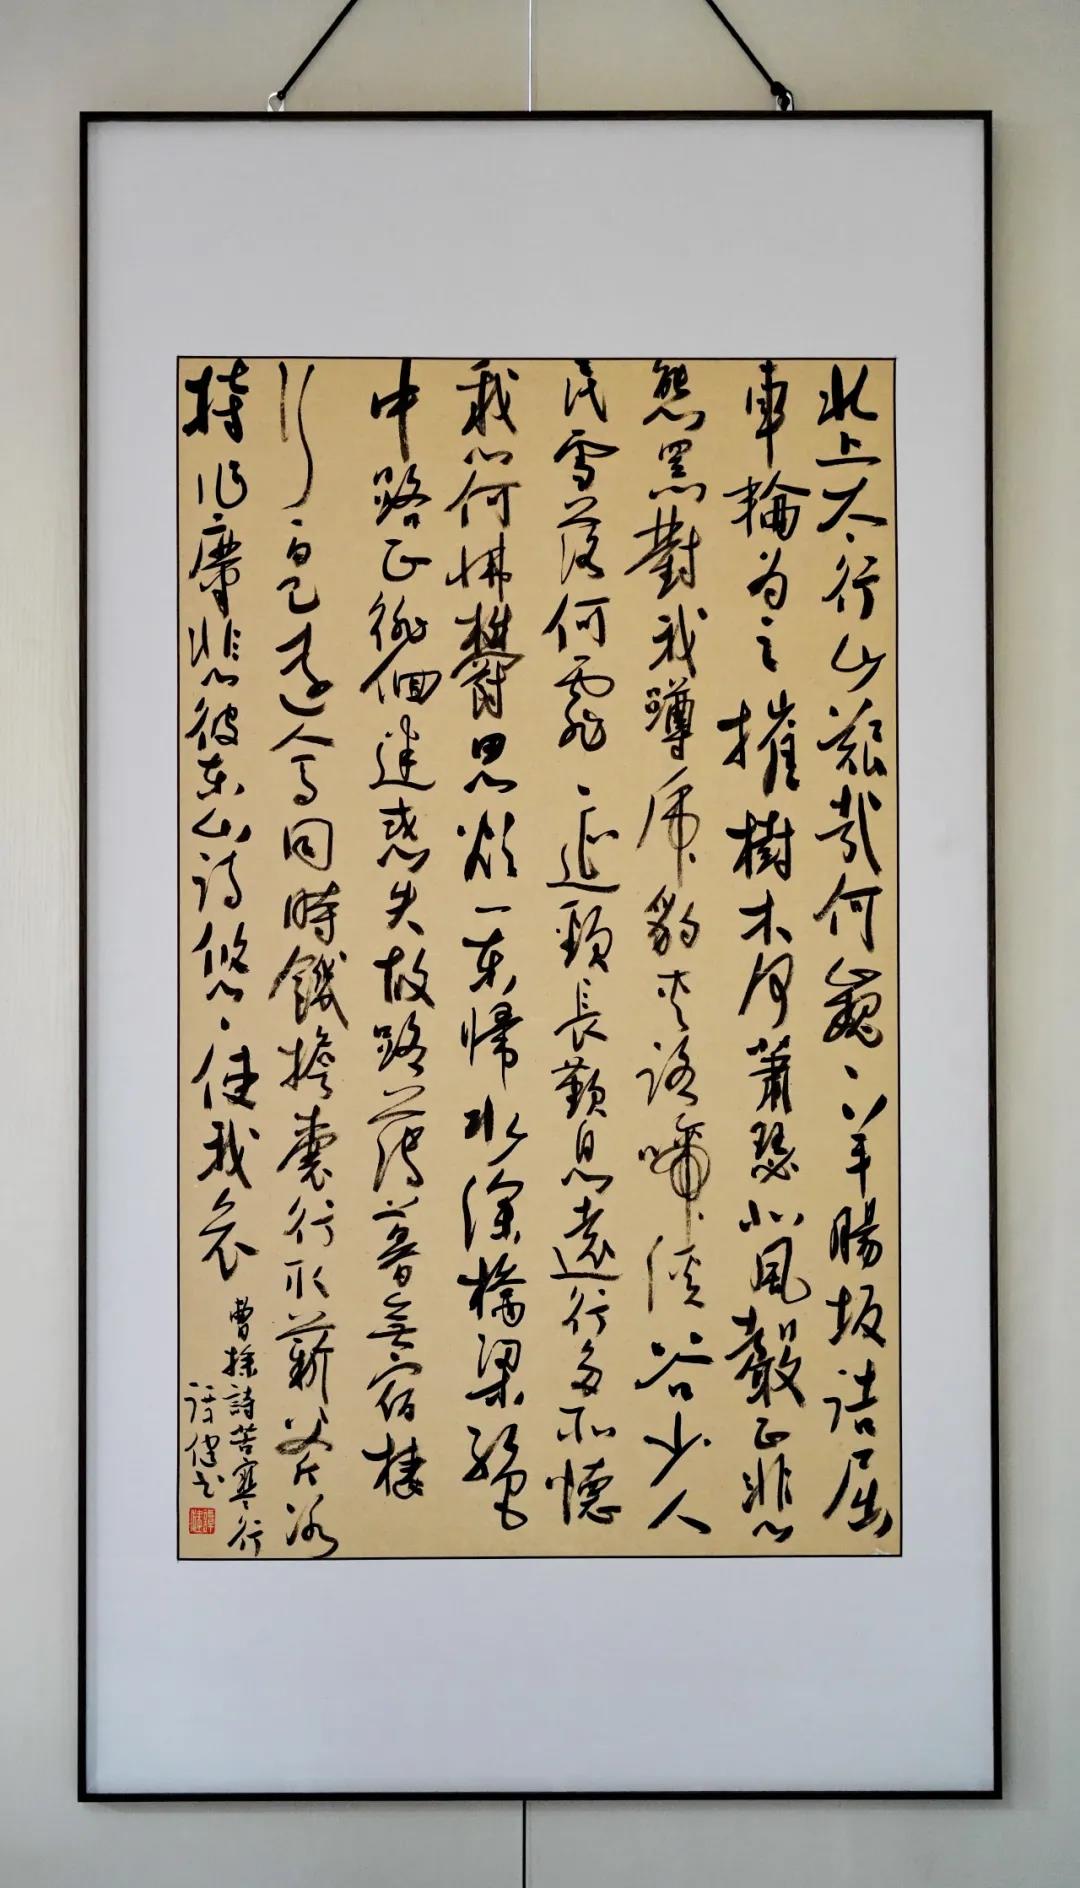 北上太行山艱哉何巍々羊腸坂詰屈
車輪為之摧樹木何蕭瑟北風聲正悲
熊羆對我蹲虎豹夾路啼溪谷少人
民雪落何霏々延頸長歎息遠行多所懷
我心何怫鬱思欲一東歸水深橋梁絕
中路正徘徊迷惑失故路薄暮無宿棲
行々日已遠人馬同時饑擔囊行取薪斧冰
持作糜悲彼東山詩悠々使我哀
曹操詩苦寒行
健書